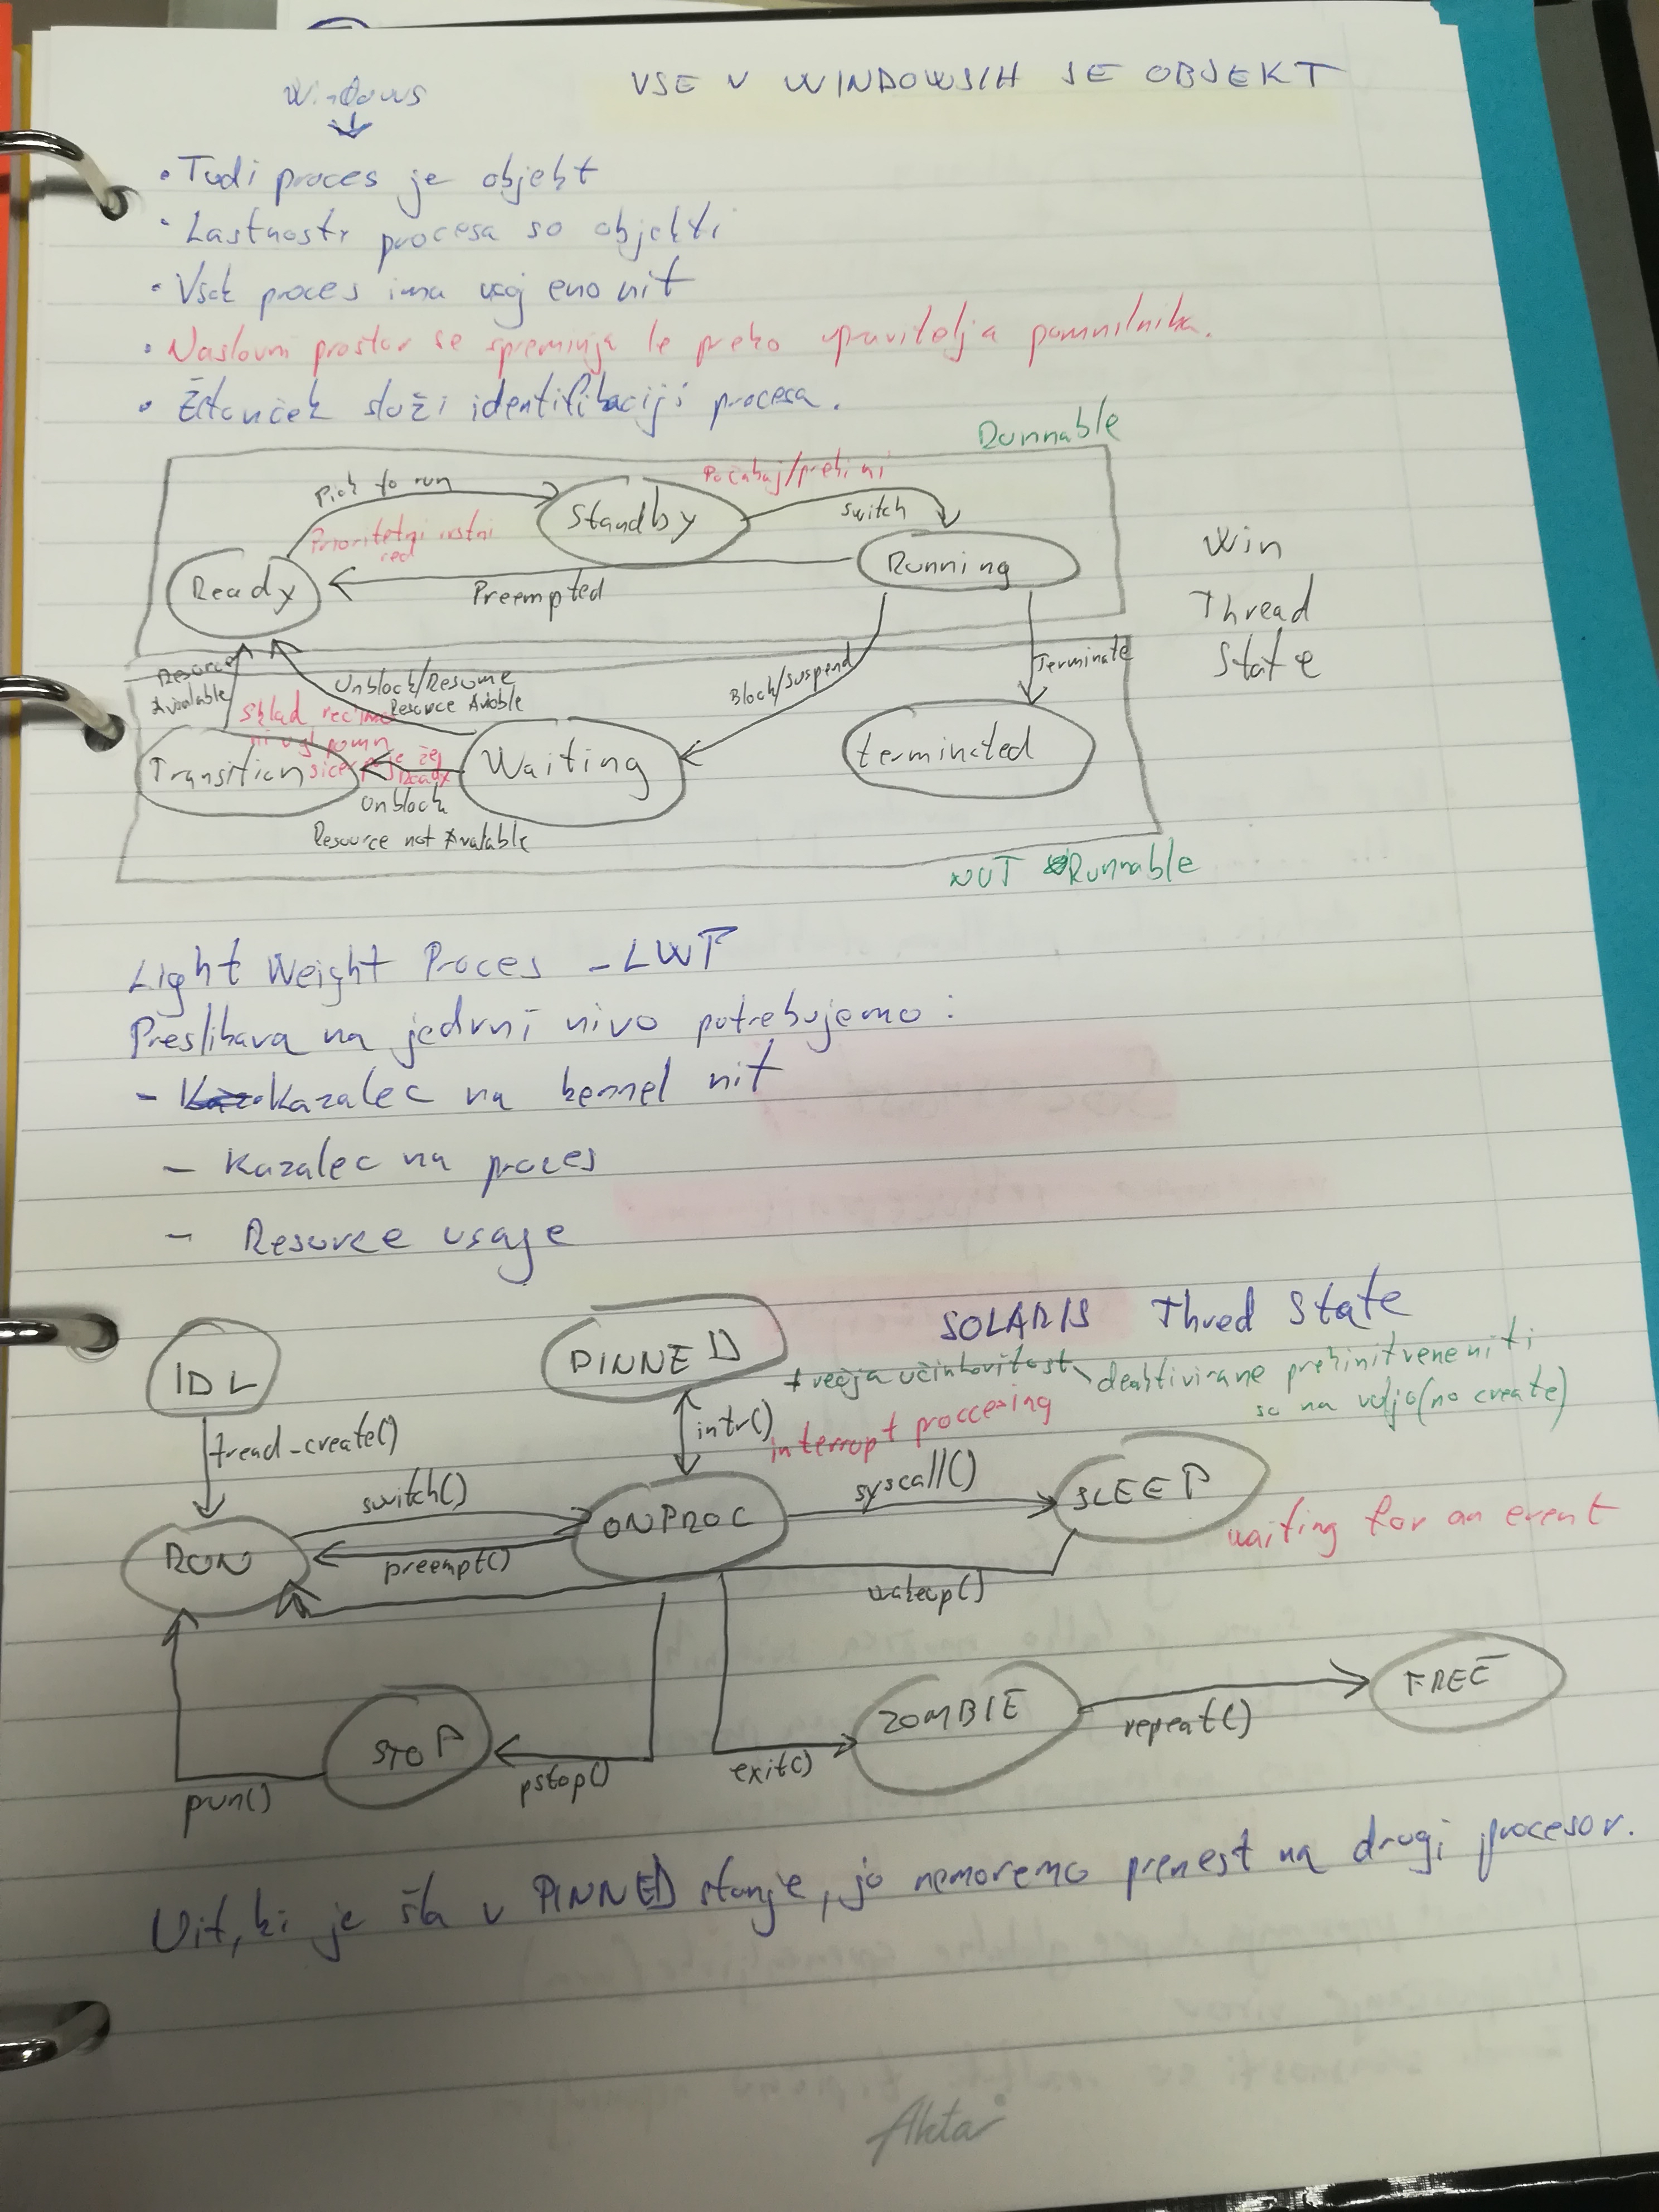 Windows
VSE V WINDOWSIH JE OBJEKT
• Tudi proces je objekt
• Lastnosti procesa so objekti
• Vsak proces ima vsaj eno nit
• Naslovni prostor se spreminja le preko upravitelja pomnilnika.
• Žetonček služi identifikaciji procesa.
Runnable
Pick to run
Počakaj/prekini
Standby
switch
Prioritetni vrstni
red
Running
Ready
Preempted
Win
Thread
State
Resource
Avialable
Unblock/Resume
Resource Avioble
Block/suspend
Terminate
Sklad recimo
ni v gl pomn
sicer že
Ready
Transition
Waiting
terminated
Unblock
Resource not Avalable
NOT Runnable
Light Weight Proces - LWP
Preslikava na jedrni nivo potrebujemo:
- Kazalec na kernel nit
- Kazalec na proces
- Resource usage
SOLARIS Thred State
IDL
PINNED
+ večja učinkovitost, deaktivirane prekinitvene niti
so na voljo (no create)
intr()
interropt proccesing
tread_create()
switch()
ONPROC
syscall()
SLEEP
waiting for an event
RUN
preempt()
wakeup()
STOP
ZOMBIE
FREE
repeat()
prun()
pstop()
exit()
Nit, ki je šla v PINNED stanje, jo nemoremo prenest na drugi procesor.
Akta